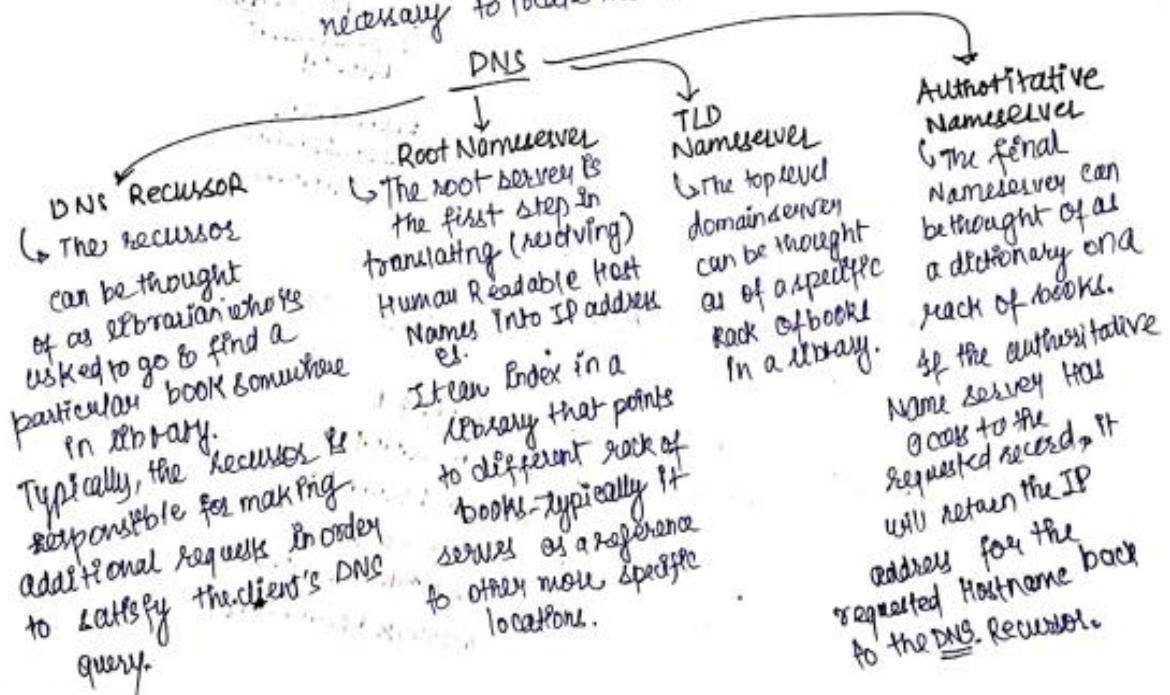 necessary to locate
DNS
DNS RECUSSOR
↳ The recursor
can be thought
of as librarian who is
asked to go & find a
particular book somewhere
in library.
Typically, the recursor is
responsible for making
additional requests in order
to satisfy the client's DNS
query.
Root Nameserver
↳ The root server is
the first step in
translating (resolving)
Human Readable Host
Names into IP address
es.
It can index in a
library that points
to different rack of
books - typically it
serves as a reference
to other more specific
locations.
TLD
Nameserver
↳ The top level
domain server
can be thought
as of a specific
rack of books
in a library.
Authoritative
Nameserver
↳ The final
Nameserver can
be thought of as
a dictionary on a
rack of books.
If the authoritative
Name server has
access to the
requested record, it
will return the IP
address for the
requested Hostname back
to the DNS Recursor.